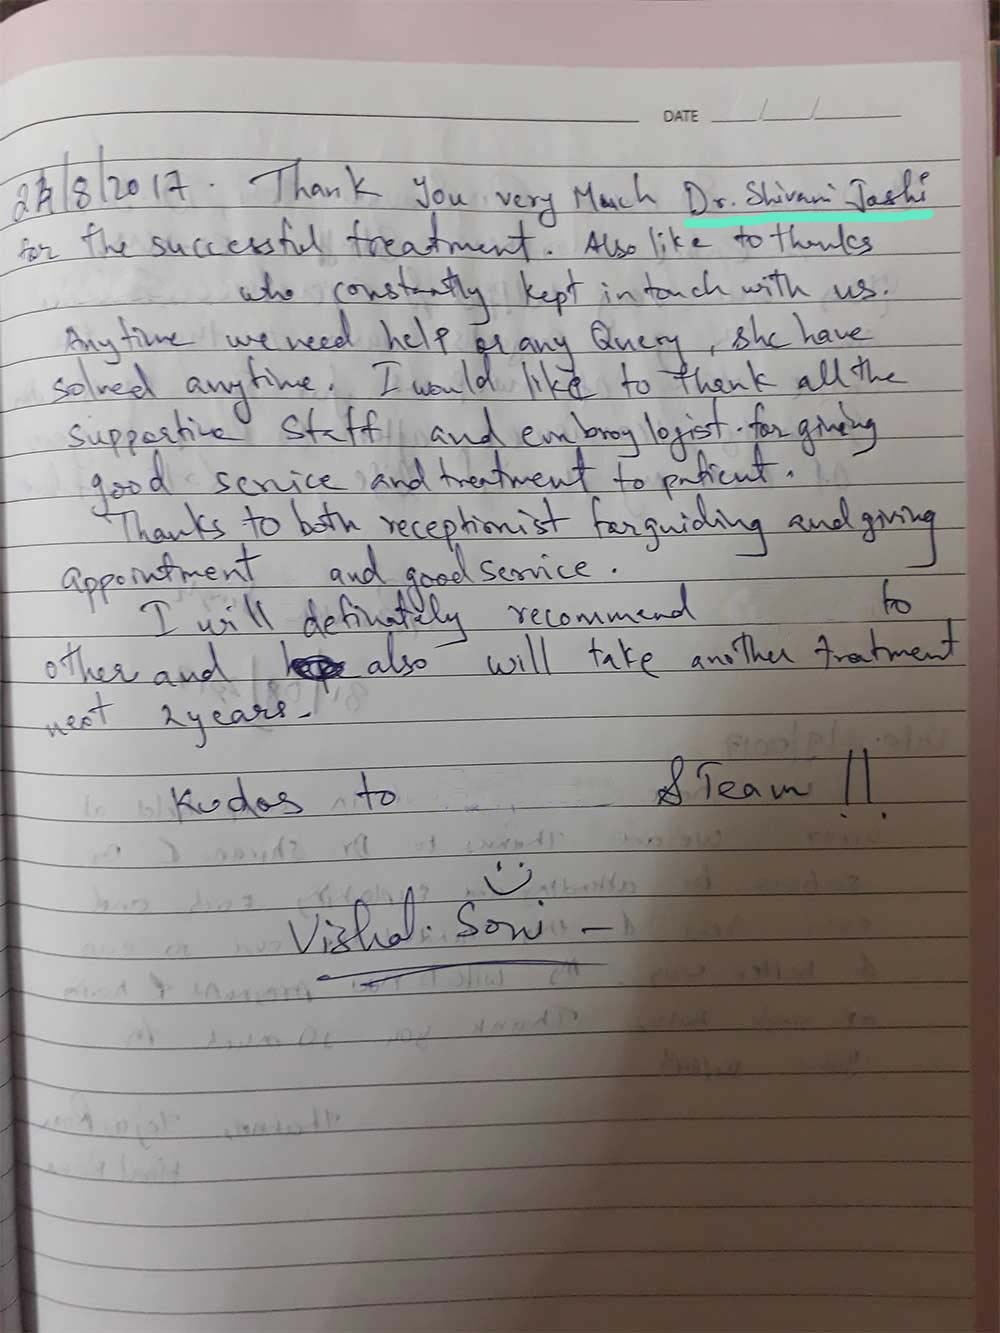 DATE / /
/8/2017. Thank you very Much Dr. Shivani Joshi
for the successful treatment. Also like to thanks
who constantly kept in touch with us.
Anytime we need help or any Query, she have
solved anytime. I would like to thank all the
supportive staff and embroylogist for giving
good service and treatment to patient.
Thanks to both receptionist for guiding and giving
appointment and good service.
I will definately recommend to
other and also will take another treatment
next 2 years-
Kudos to & Team !!
Vishal. Soni -